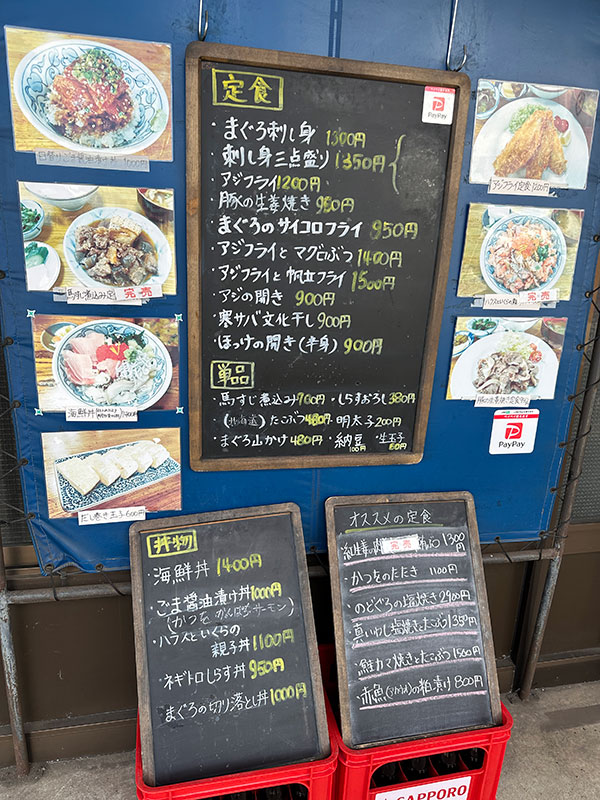 定食
・まぐろ刺し身 1300円
刺し身三点盛り 1350円
・アジフライ 1200円
・豚の生姜焼き 950円
・まぐろのサイコロフライ 950円
・アジフライと マグロぶつ 1400円
・アジフライと 帆立フライ 1500円
・アジの開き 900円
・寒サバ文化干し 900円
・ほっけの開き(半身) 900円
単品
・馬すじ煮込み 700円 ・しらすおろし 380円
たこぶつ 480円・明太子 200円
・まぐろ山かけ 480円・納豆 100円・生玉子 80円
PayPay
1000円
馬すじ煮込み定 完売
海鮮丼
だし巻き玉子 600円
アジフライ定食 1200
ハラスといくらの親 完売
豚の生姜焼き定食
PayPay
丼物
・海鮮丼 1400円
・ごま醤油漬け丼 1000円
(かつを がんばらサーモン)
・ハラスといくらの
親子丼 1100円
・ネギトロしらす丼 950円
・まぐろの切り落とし丼 1000円
オススメの定食
完売 1300円
・かつをのたたき 1100円
・のどぐろの塩焼き 2900円
・真いわし塩焼きとたこぶつ
・鮭カマ焼きとたこぶつ 1500円
・赤魚(アカウオ)の粕漬け 800円
SAPPORO